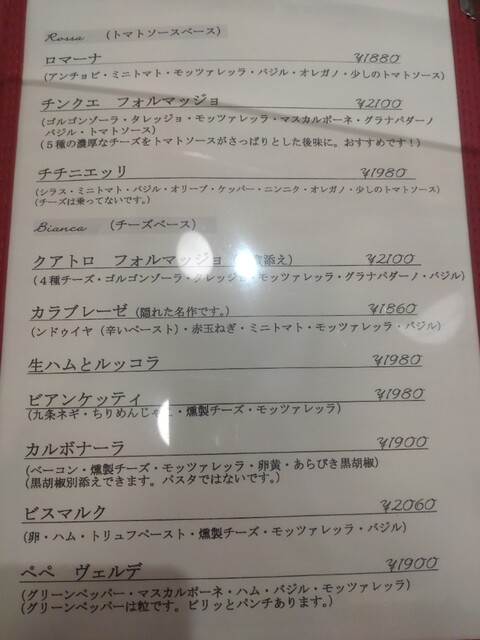 Rossa （トマトソースベース）
ロマーナ ¥1880
（アンチョビ・ミニトマト・モッツァレッラ・バジル・オレガノ・少しのトマトソース）
チンクエ フォルマッジョ ¥2100
（ゴルゴンゾーラ・タレッジョ・モッツァレッラ・マスカルポーネ・グラナパダーノ
バジル・トマトソース）
（５種の濃厚なチーズをトマトソースがさっぱりとした後味に。おすすめです！）
チチニエッリ ¥1980
（シラス・ミニトマト・バジル・オリーブ・ケッパー・ニンニク・オレガノ・少しのトマトソース）
（チーズは乗ってないです。）
Bianca （チーズベース）
クアトロ フォルマッジョ 添え） ¥2100
（４種チーズ・ゴルゴンゾーラ・タレッジョ・モッツァレッラ・グラナパダーノ・バジル）
カラブレーゼ（隠れた名作です。） ¥1860
（ンドゥイヤ（辛いペースト）・赤玉ねぎ・ミニトマト・モッツァレッラ・バジル）
生ハムとルッコラ ¥1980
ビアンケッティ ¥1980
（九条ネギ・ちりめんじゃこ・燻製チーズ・モッツァレッラ）
カルボナーラ ¥1900
（ベーコン・燻製チーズ・モッツァレッラ・卵黄・あらびき黒胡椒）
（黒胡椒別添えできます。パスタではないです。）
ビスマルク ¥2060
（卵・ハム・トリュフペースト・燻製チーズ・モッツァレッラ・バジル）
ペペ ヴェルデ ¥1900
（グリーンペッパー・マスカルポーネ・ハム・バジル・モッツァレッラ）
（グリーンペッパーは粒です。ピリッとパンチあります。）